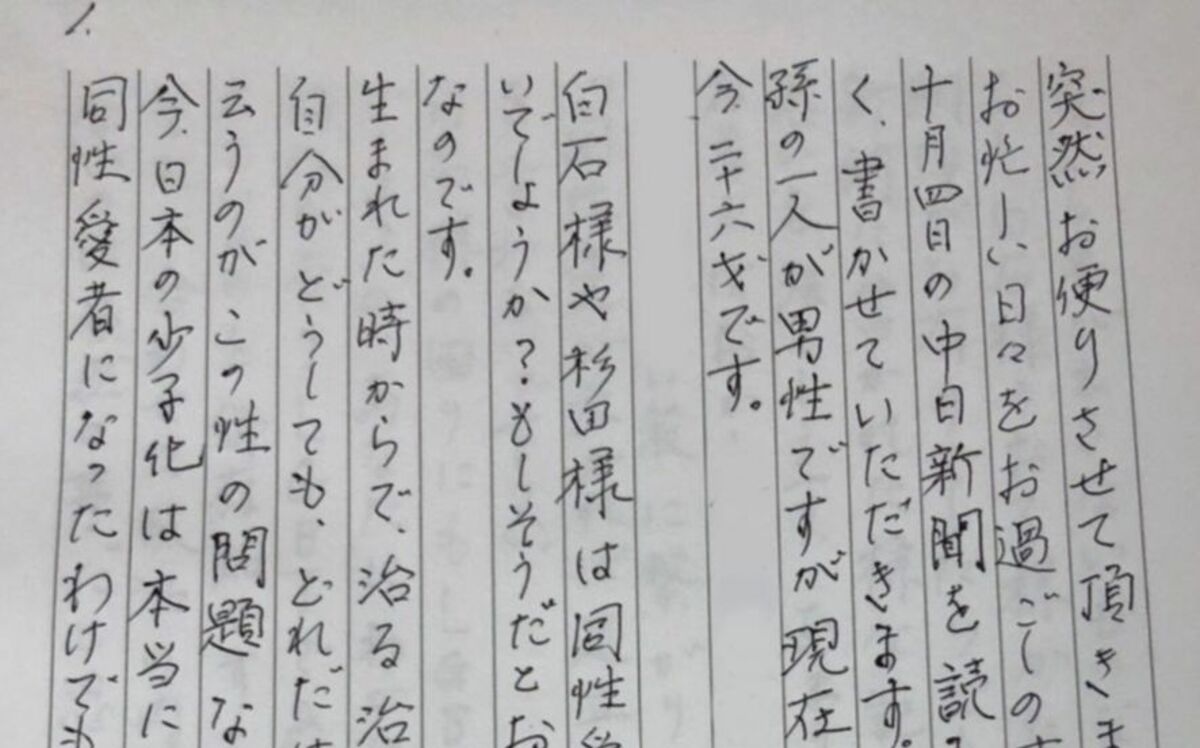 1.
突然お便りさせて頂き
お忙しい日々をお過ごしの
十月四日の中日新聞を読
く、書かせていただきます。
孫の一人が男性ですが現在
今二十六才です。
白石様や杉田様は同性愛
いでしょうか？もしそうだとお
なのです。
生まれた時からで、治る治
自分がどうしても、どれだけ
云うのがこの性の問題な
今、日本の少子化は本当に
同性愛者になったわけでも